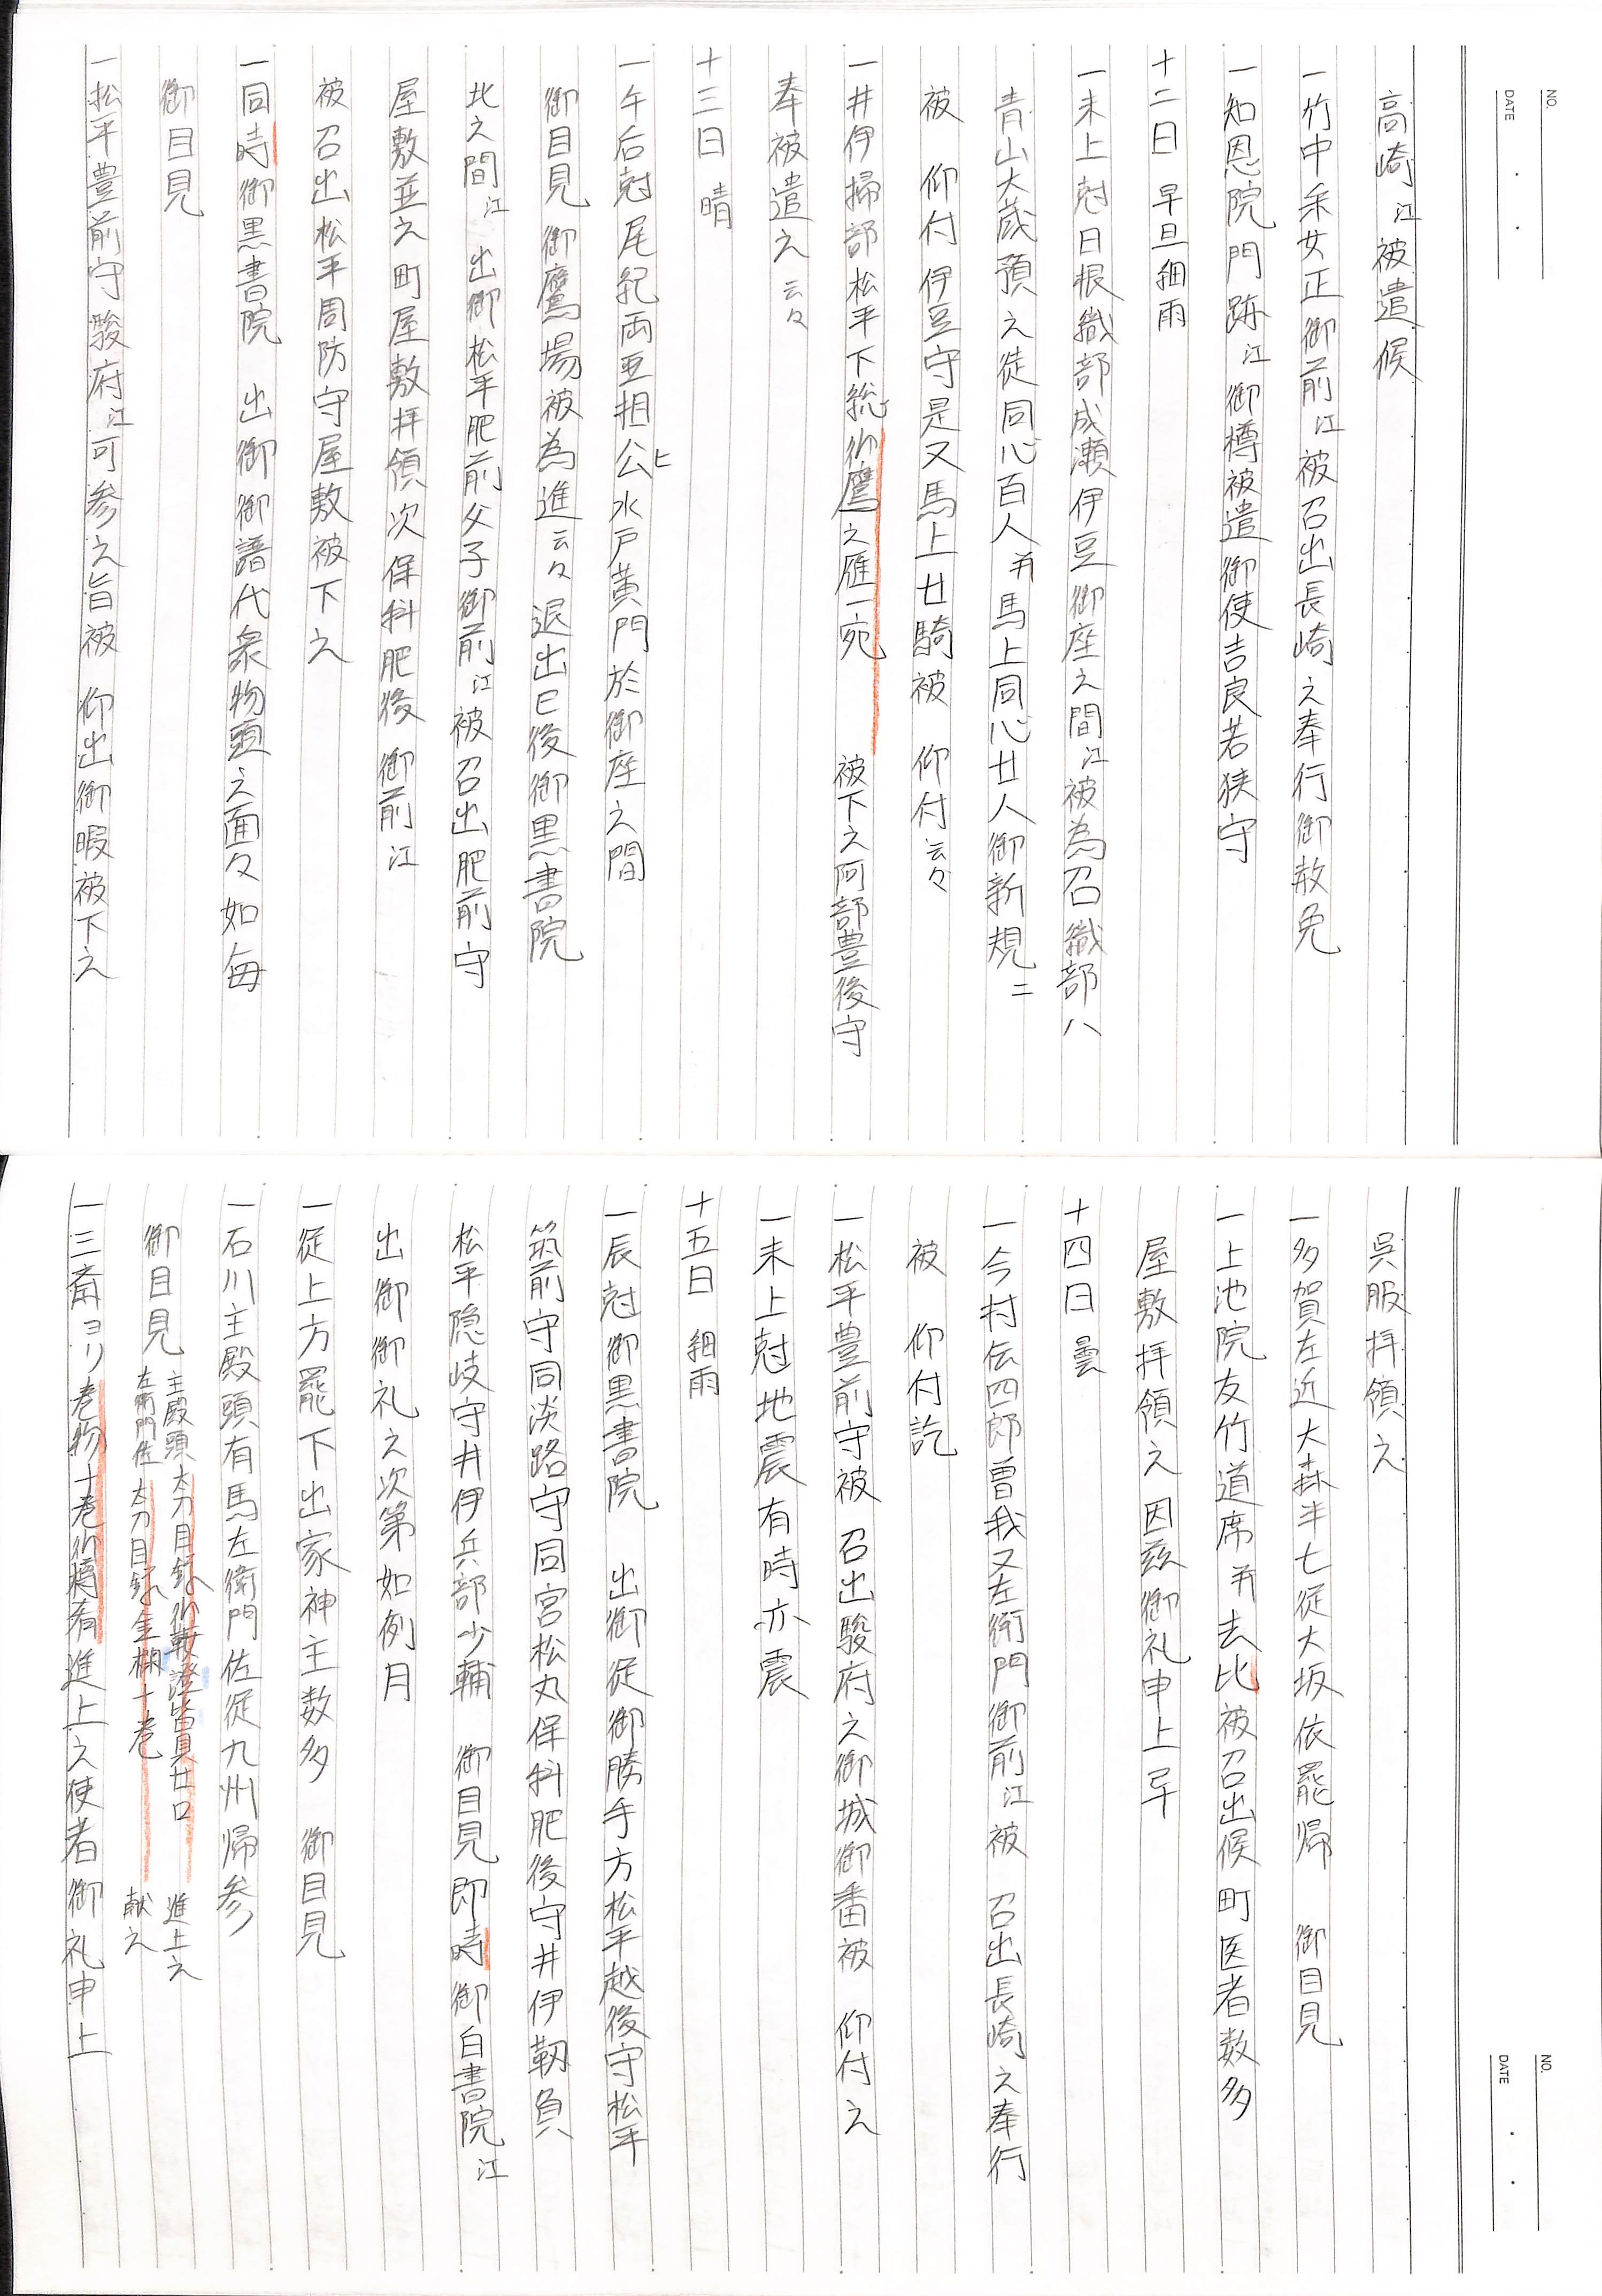 NO.
DATE
高崎江被遣候
一竹中采女正御前江被召出長崎之奉行御赦免
一知恩院門跡江御樽被遣御使吉良若狭守
十二日 早旦細雨
一未上尅日根織部成瀬伊豆御座之間江被為召織部ハ
青山大蔵預之徒同心百人并馬上同心廿人御新規ニ
被 仰付伊豆守是又馬上廿騎被 仰付云々
一井伊掃部松平下総御鷹之雁一宛 被下之阿部豊後守
奉被遣之云々
十三日 晴
一午后尅尾紀両亜相公ト水戸黄門於御座之間
御目見御鷹場被為進云々退出已後御黒書院
北之間江 出御松平肥前父子御前江被召出肥前守
屋敷並之町屋敷拝領次保科肥後御前江
被召出松平周防守屋敷被下之
一同時御黒書院 出御御譜代衆物頭之面々如毎
御目見
一松平豊前守駿府江可参之旨被 仰出御暇被下之
NO.
DATE
呉服拝領之
一多賀左近大森半七従大坂依罷帰 御目見
一上池院友竹道席并去比被召出候町医者数多
屋敷拝領之因茲御礼申上畢
十四日 曇
一今村伝四郎曽我又左衛門御前江被 召出長崎之奉行
被 仰付訖
一松平豊前守被 召出駿府之御城御番被 仰付之
一未上尅地震有時亦震
十五日 細雨
一辰尅御黒書院 出御従御勝手方松平越後守松平
筑前守同淡路守同宮松丸保科肥後守井伊靱負
松平隠岐守井伊兵部少輔 御目見即時御白書院江
出御御礼之次第如例月
一従上方罷下出家神主数多 御目見
一石川主殿頭有馬左衛門佐従九州帰参
御目見 主殿頭太刀目録御鞍鐙皆具廿口 進上之
左衛門佐太刀目録金襴十巻 献之
一三斎ヨリ巻物十巻御樽肴進上之使者御礼申上